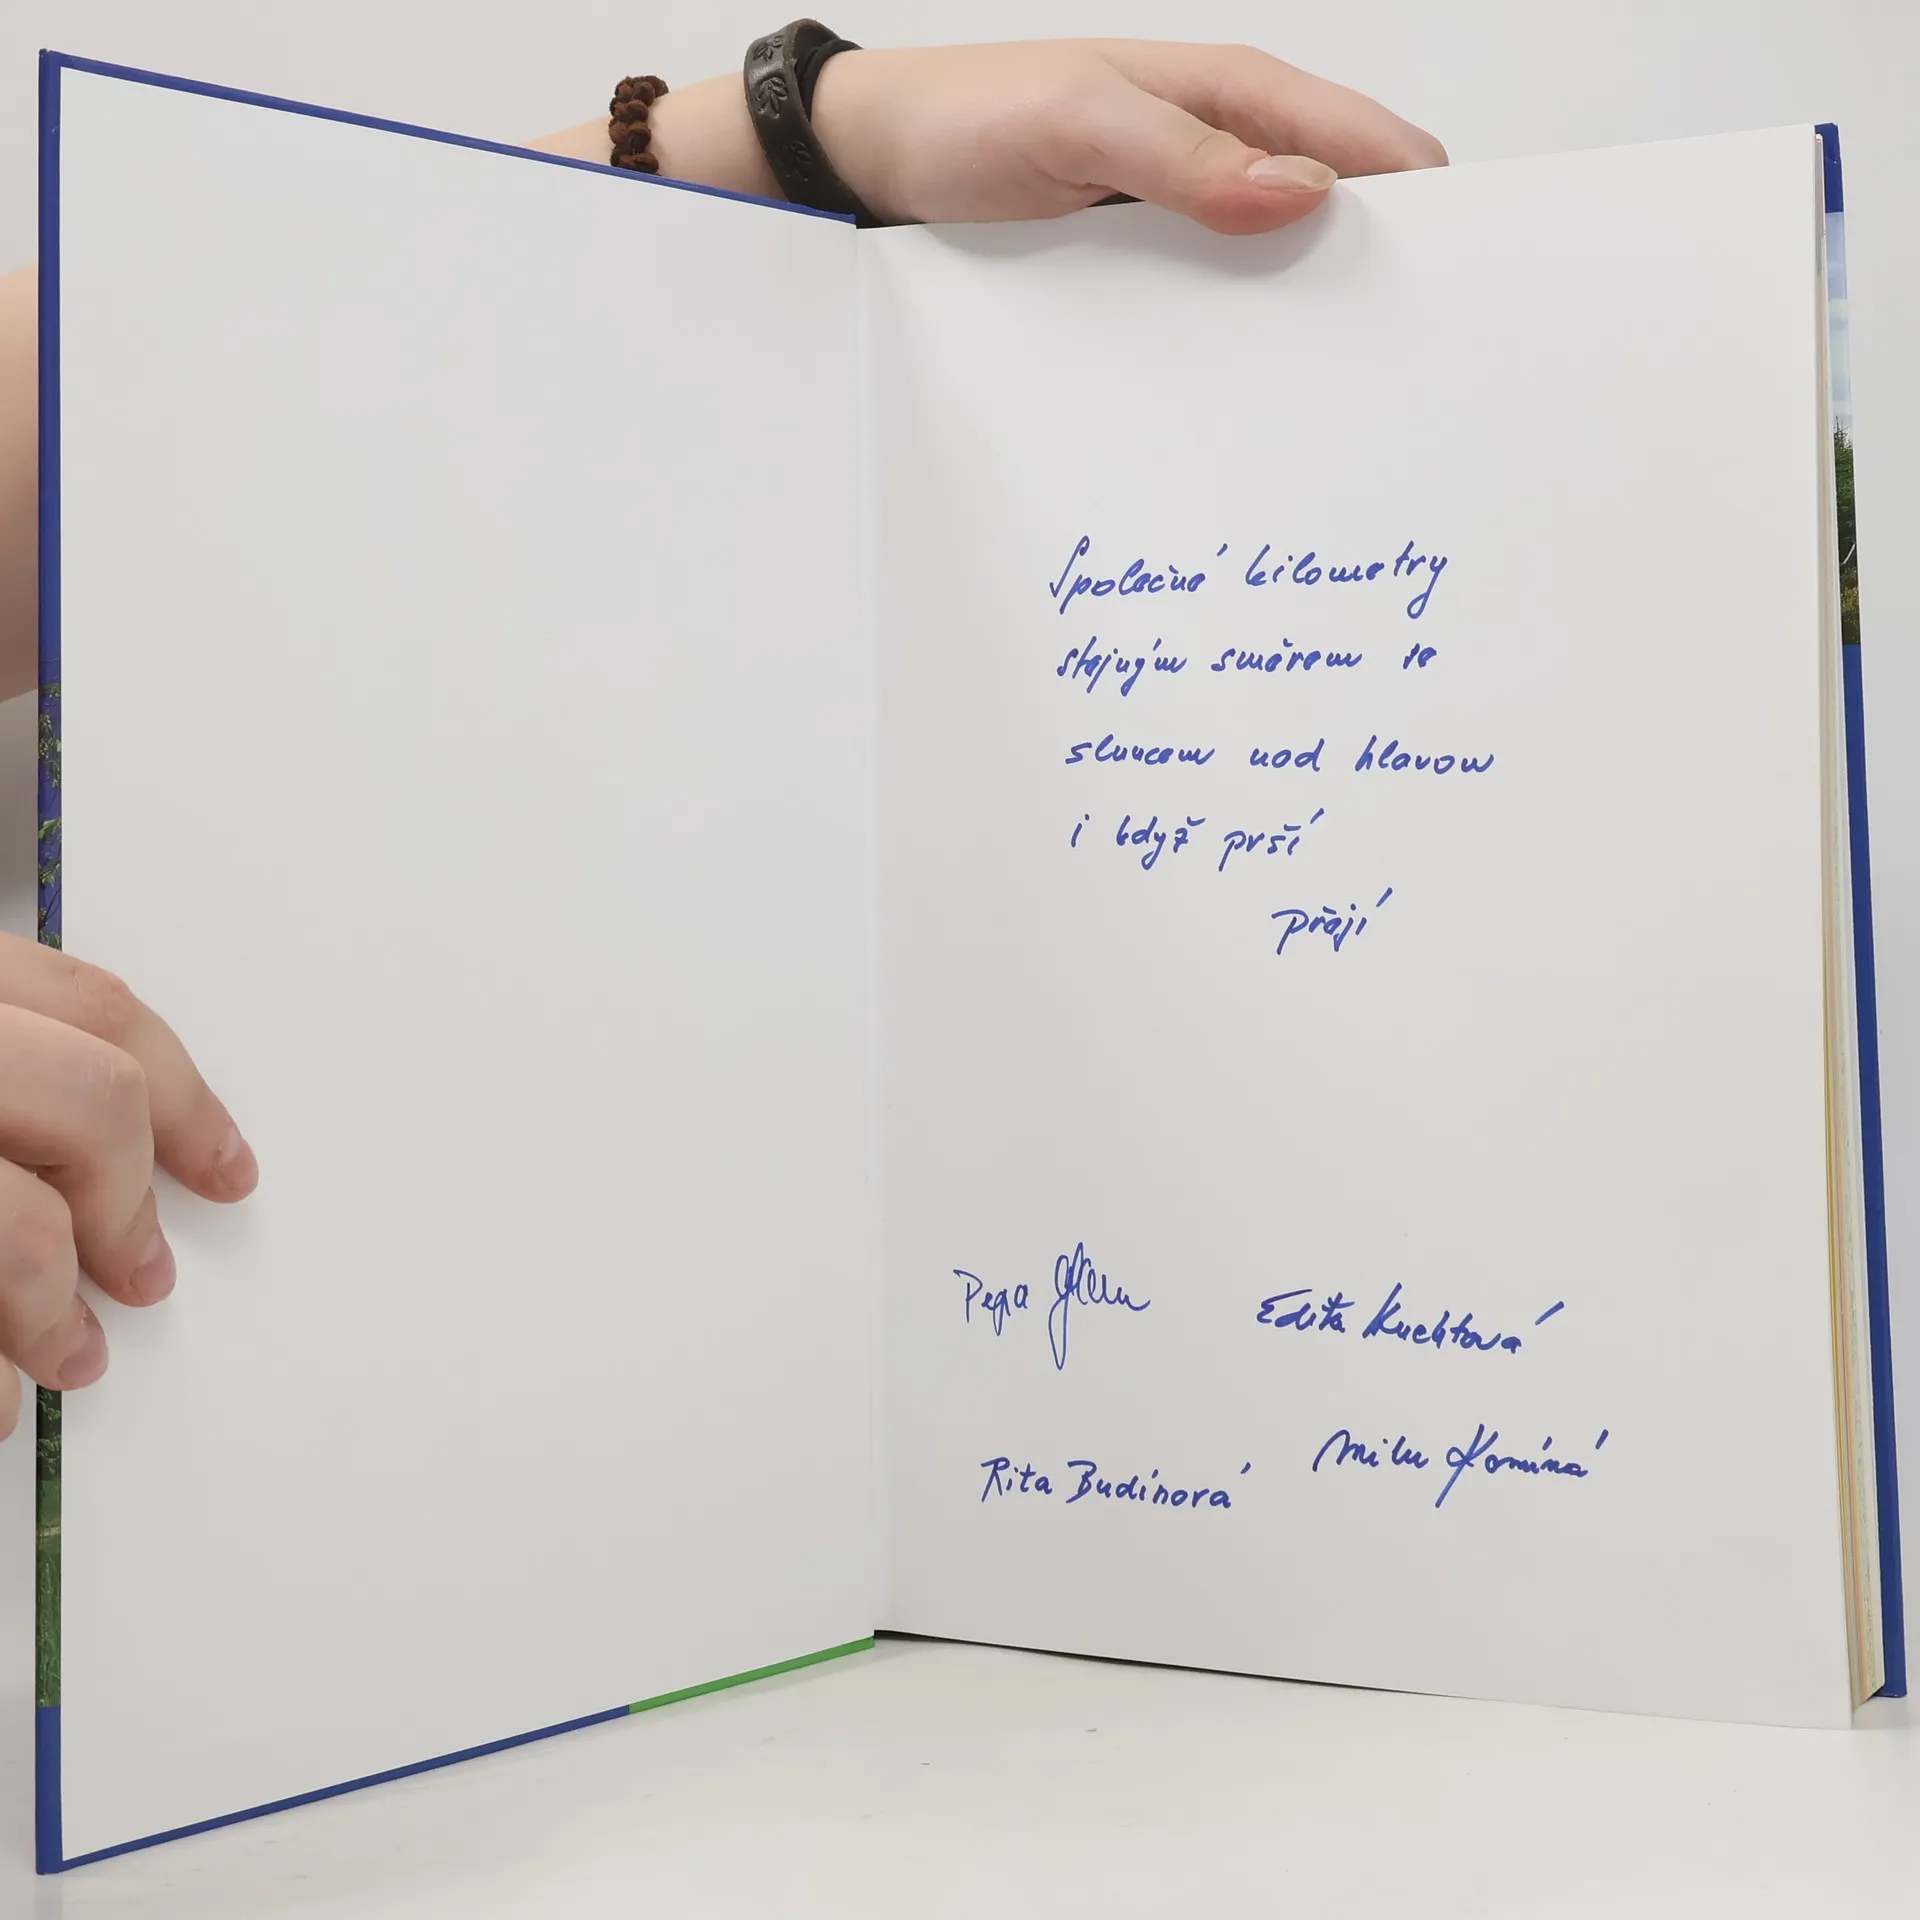 Společné kilometry
stejným směrem se
sluncem nad hlavou
i když prší
přejí
Pepa
Edita Kuchtová
Rita Budínová
Milu Komíná